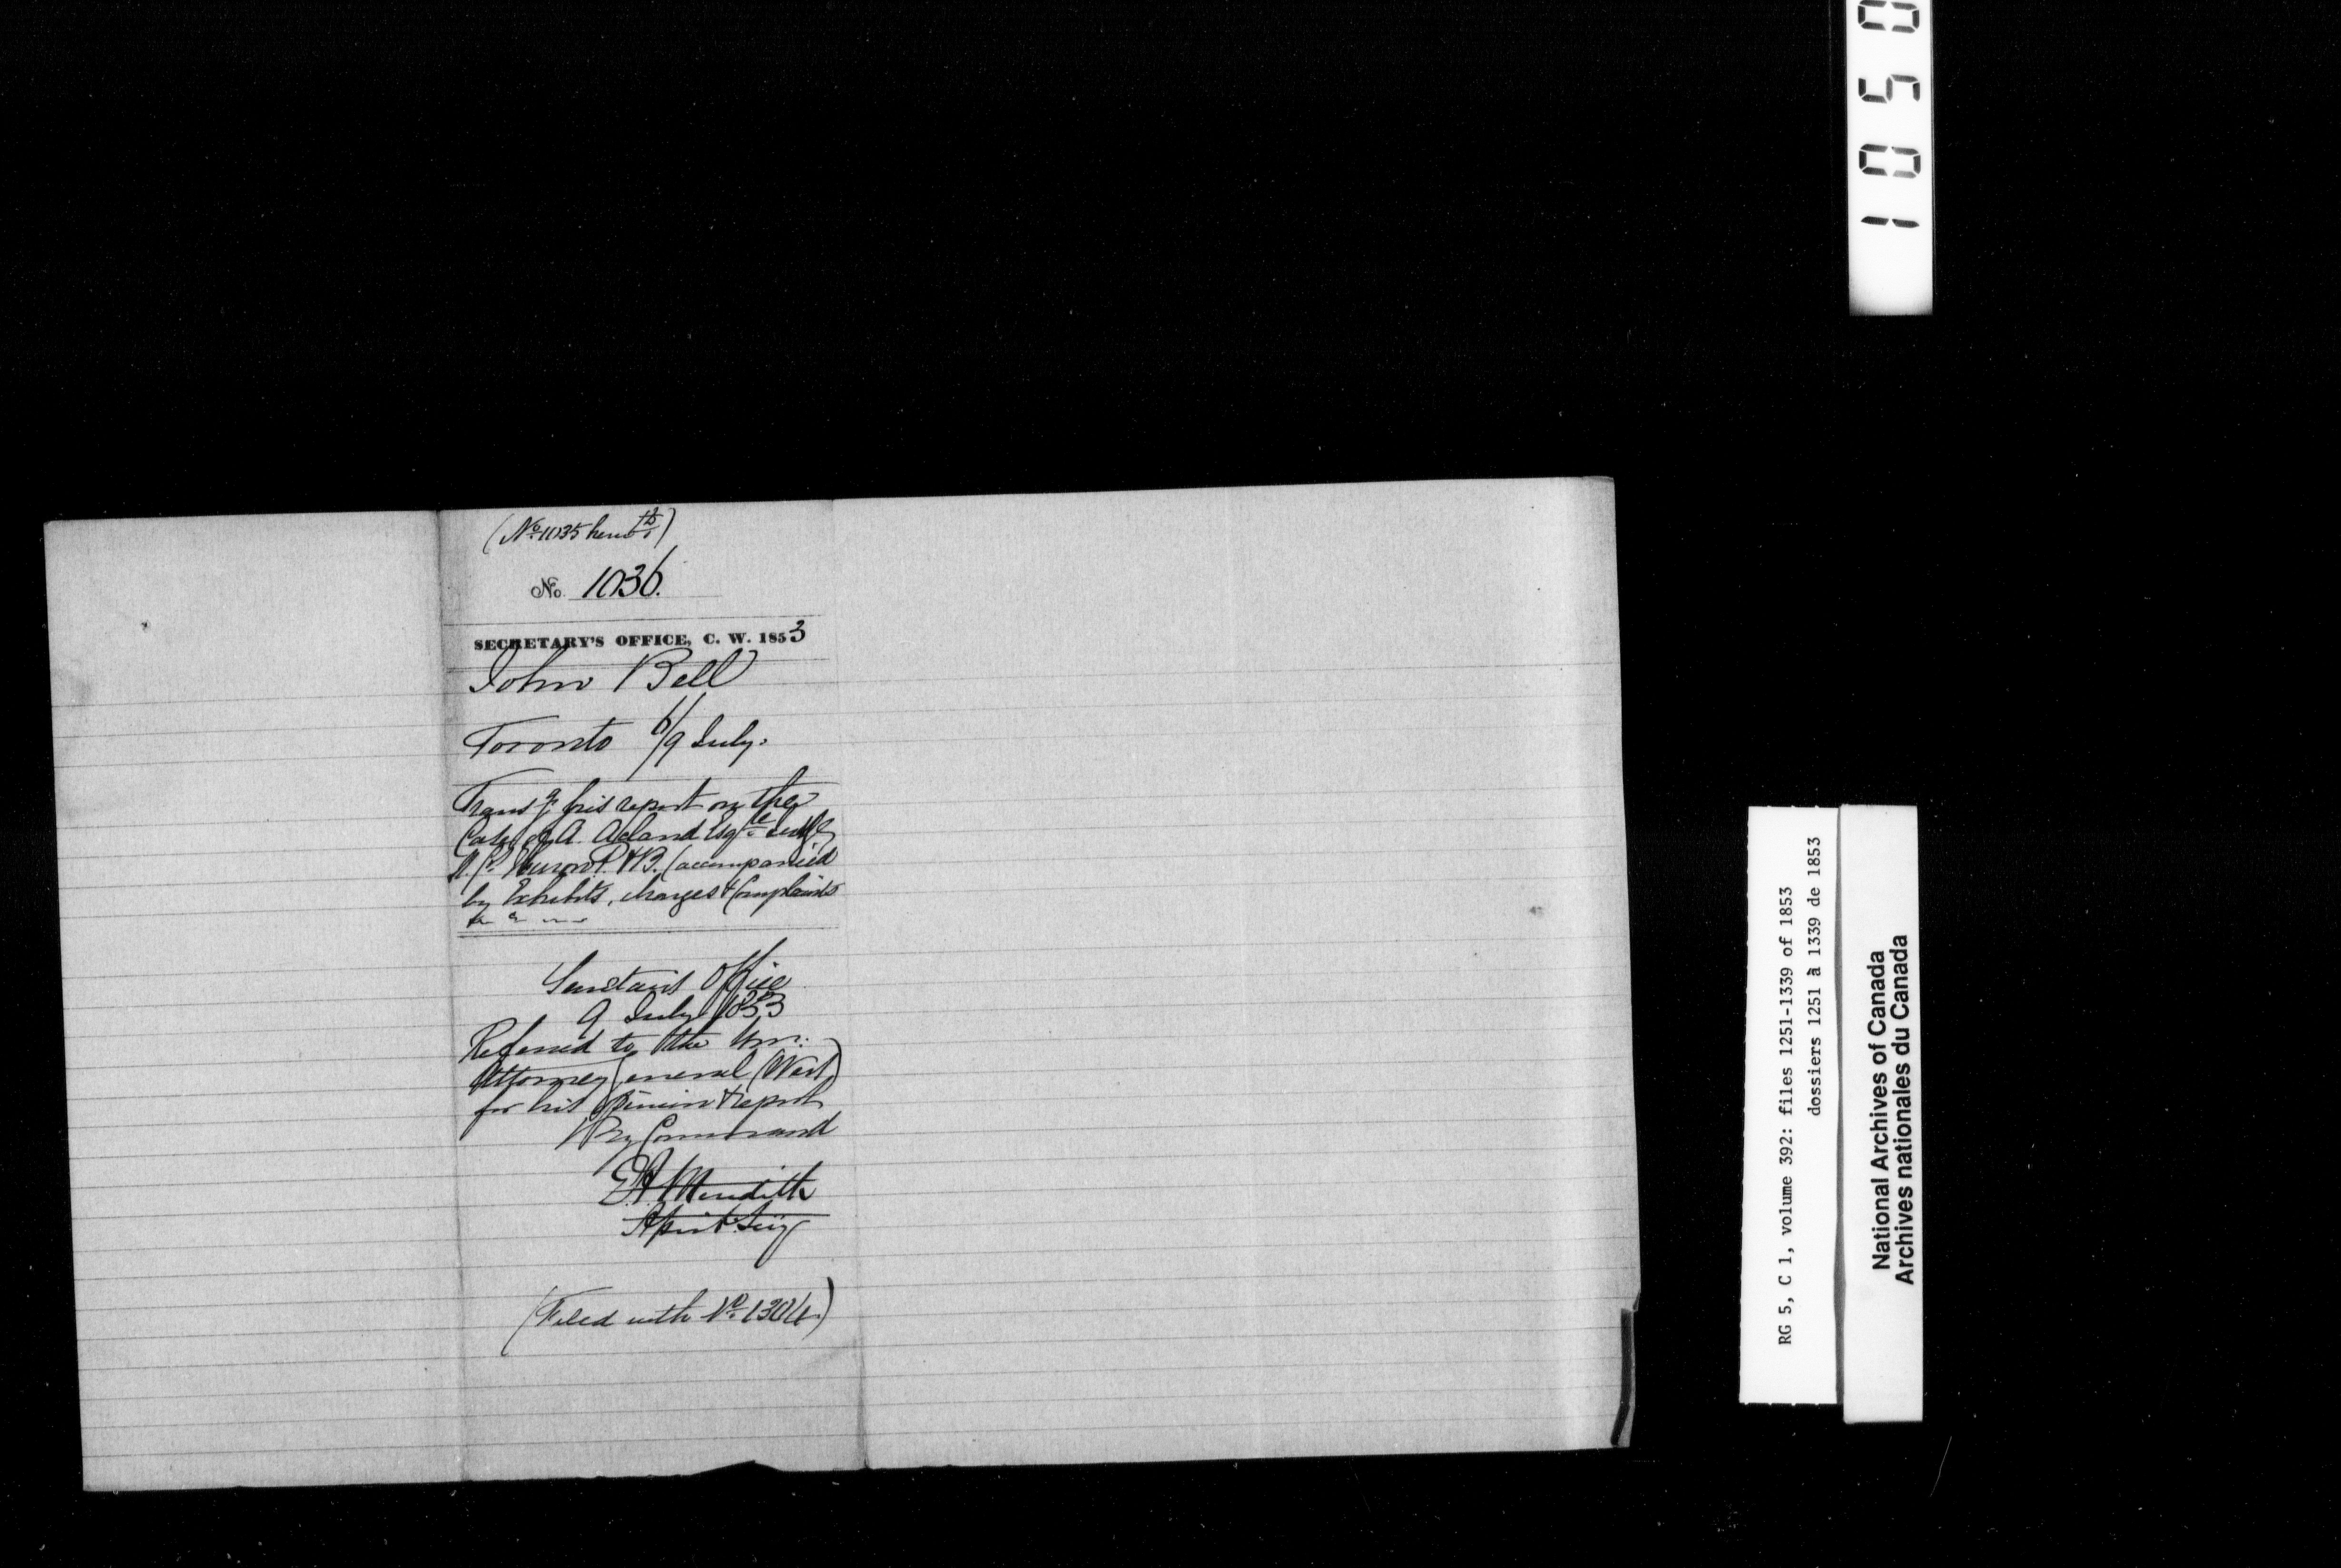 (No. 1035 herewth)
No. 1036.
SECRETARY'S OFFICE, C. W. 1853
John Bell
Toronto 6/9 July.
Transg his report on the
Case of A. Acland Esqre Judge
C. C. Huron P. & B. (accompanied
by Exhibits, charges & Complaints
Secretary's Office
9 July 1853
Referred to the Hon:
Attorney General (West)
for his opinion & report
By Command
E A Meredith
Assist Secy
(Filed with No. 1304.)
1050
RG 5, C 1, volume 392: files 1251-1339 of 1853
dossiers 1251 à 1339 de 1853
National Archives of Canada
Archives nationales du Canada